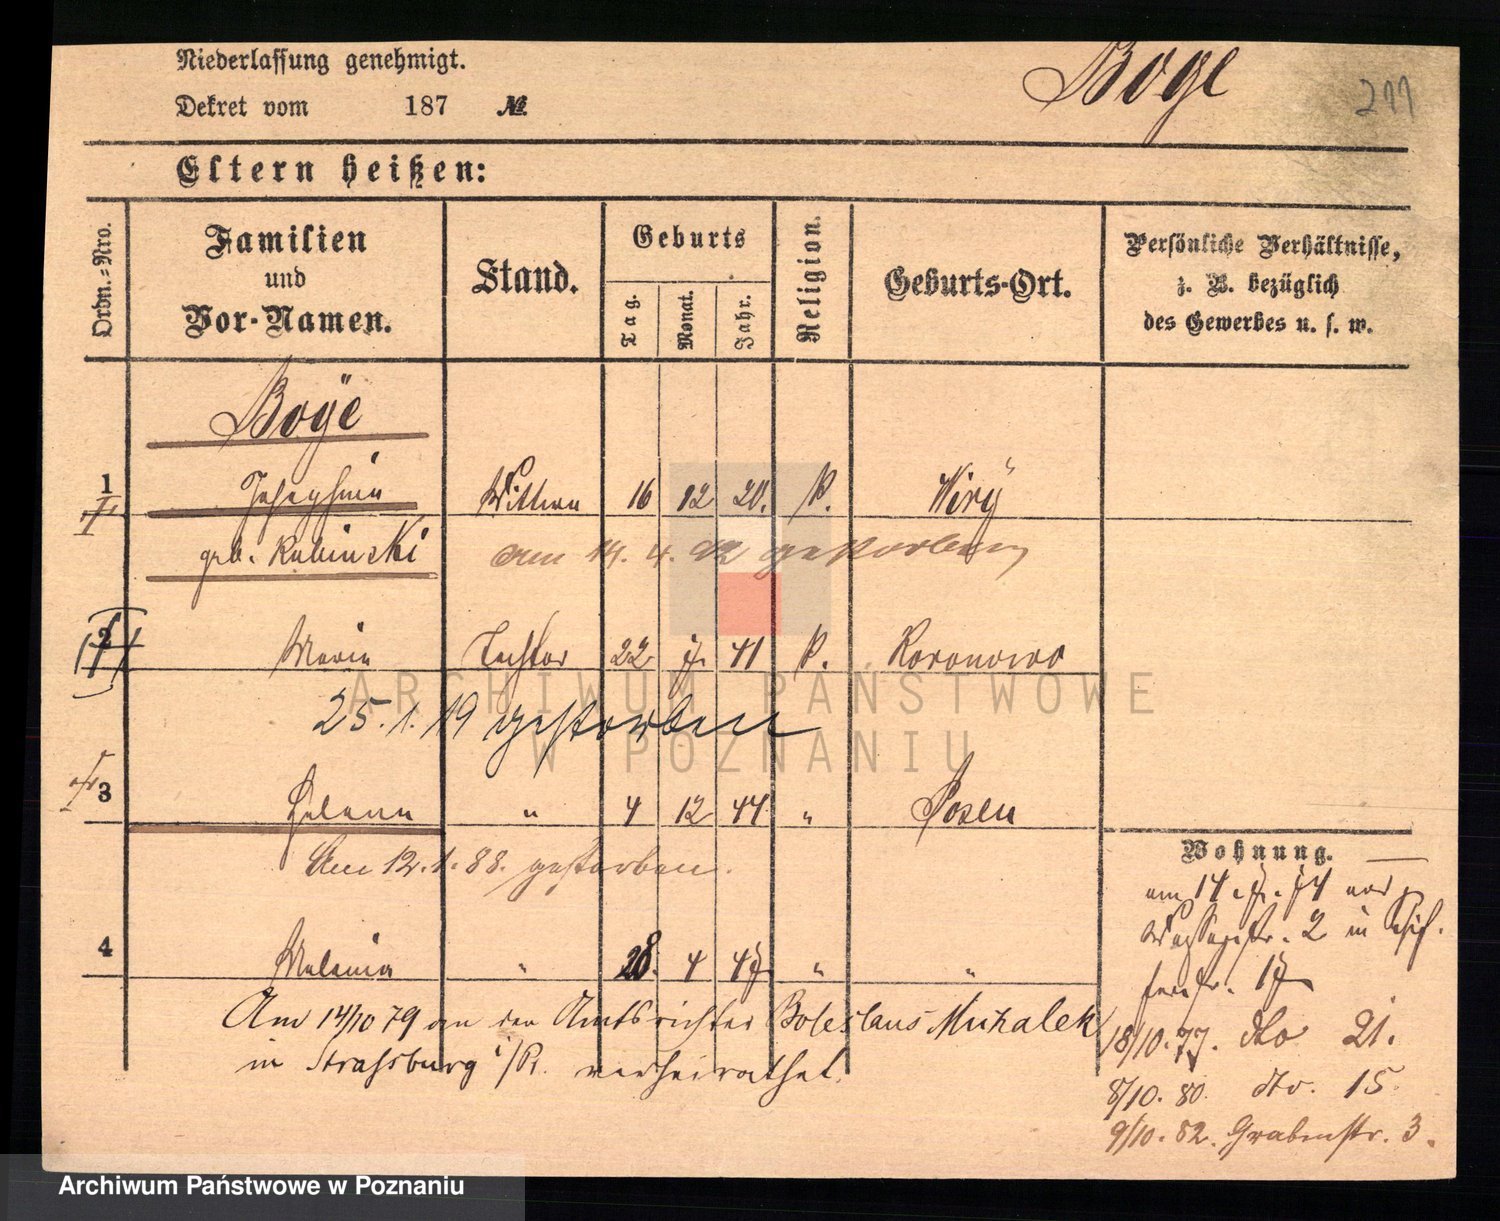 Niederlassung genehmigt.
Dekret vom 187 №
Boge
211
Eltern heißen:
Ordn.=Nro.
Familien
und
Vor-Namen.
Stand.
Geburts
Tag.
Monat.
Jahr.
Religion.
Geburts-Ort.
Persönliche Verhältnisse,
z. B. bezüglich
des Gewerbes u. s. w.
Bogë
1 Josephine Wittwe 16 12 20. k. Wiry
geb. Rubinski am 14. 4. 92 gestorben
2 Marie Tochter 22 7. 41 k. Koronowo
25. 1. 19 gestorben
3 Helene " 4 12 44 " Posen
Am 12. 1. 88. gestorben.
4 Melania " 28. 4 47 " "
Am 14/10 79 an den Amtsrichter Boleslaus Michalek
in Strassburg i/Pr. verheirathet.
Wohnung.
am 14. 7. 74 von
2 in
17
18/10. 77. dto 21.
8/10. 80. dto. 15.
9/10. 82. Grabenstr. 3.
ARCHIWUM PAŃSTWOWE
W POZNANIU
Archiwum Państwowe w Poznaniu